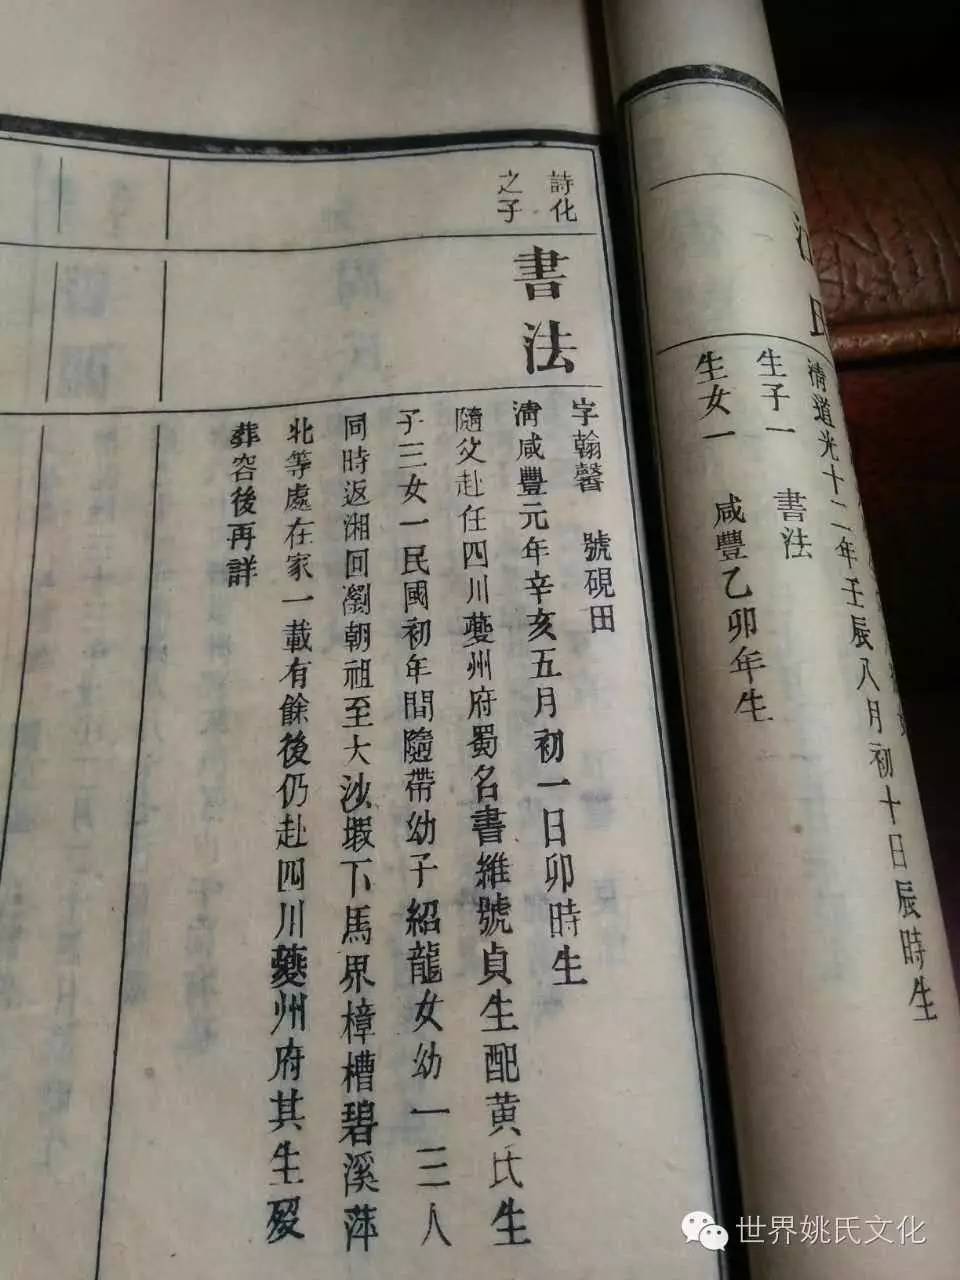 江氏
清道光十二年壬辰八月初十日辰時生
生子一 書法
生女一 咸豐乙卯年生
詩化
之子
書法
字翰馨 號硯田
清咸豐元年辛亥五月初一日卯時生
隨父赴任四川夔州府蜀名書維號貞生配黄氏生
子三女一民國初年間隨帶幼子紹龍女幼一三人
同時返湘回瀏朝祖至大沙塅下馬界樟槽碧溪萍
北等處在家一載有餘後仍赴四川夔州府其生歿
葬容後再詳
世界姚氏文化